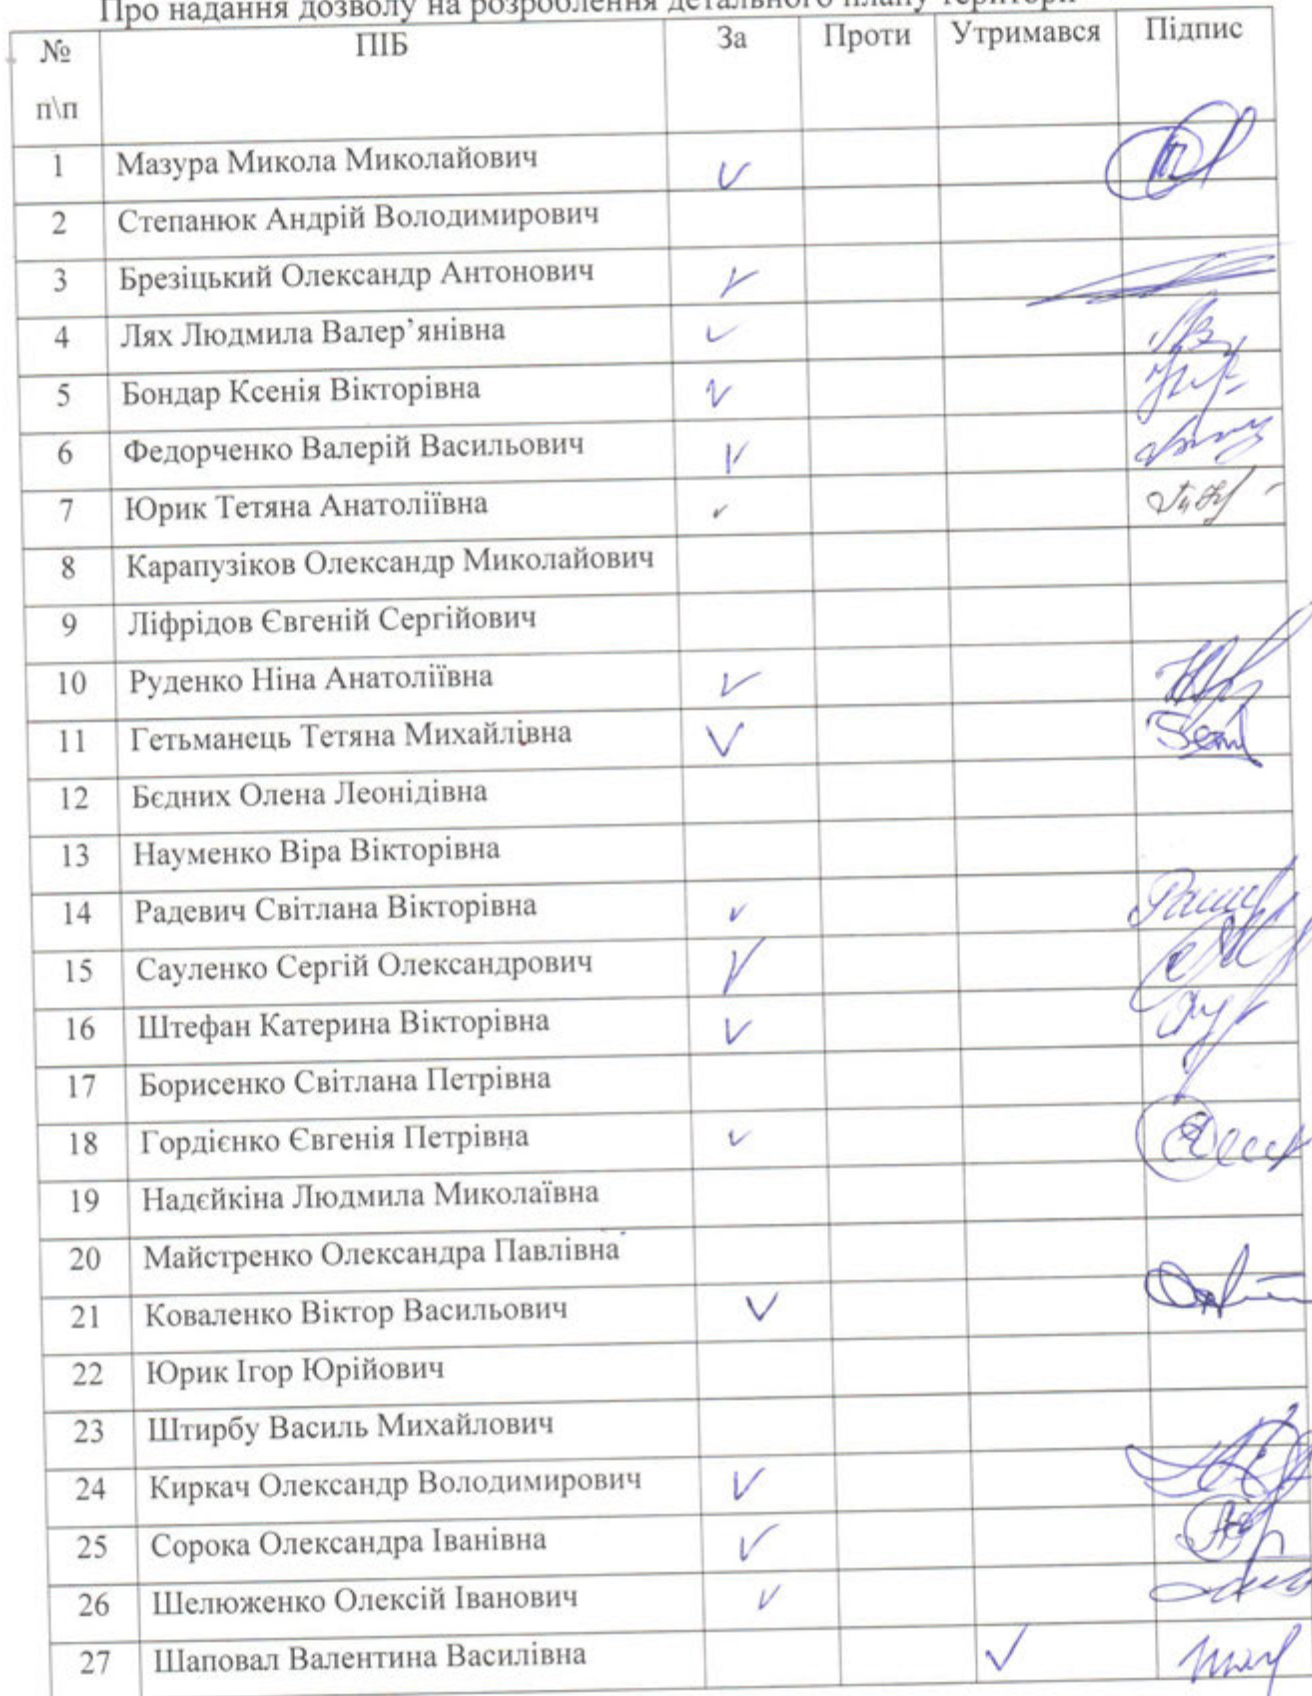 Про надання дозволу на розроблення детального плану території
№ п\п ПІБ За Проти Утримався Підпис
1 Мазура Микола Миколайович
2 Степанюк Андрій Володимирович
3 Брезіцький Олександр Антонович
4 Лях Людмила Валер’янівна
5 Бондар Ксенія Вікторівна
6 Федорченко Валерій Васильович
7 Юрик Тетяна Анатоліївна
8 Карапузіков Олександр Миколайович
9 Ліфрідов Євгеній Сергійович
10 Руденко Ніна Анатоліївна
11 Гетьманець Тетяна Михайлівна
12 Бєдних Олена Леонідівна
13 Науменко Віра Вікторівна
14 Радевич Світлана Вікторівна
15 Сауленко Сергій Олександрович
16 Штефан Катерина Вікторівна
17 Борисенко Світлана Петрівна
18 Гордієнко Євгенія Петрівна
19 Надєйкіна Людмила Миколаївна
20 Майстренко Олександра Павлівна
21 Коваленко Віктор Васильович
22 Юрик Ігор Юрійович
23 Штирбу Василь Михайлович
24 Киркач Олександр Володимирович
25 Сорока Олександра Іванівна
26 Шелюженко Олексій Іванович
27 Шаповал Валентина Василівна